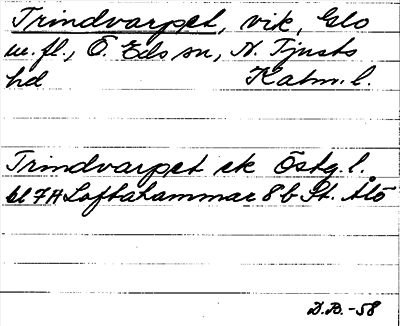 Trindvarpet, vik, Glo
m.fl., Ö. Eds sn, N. Tjusts
hd Kalm. l.
Trindvarpet ek Östg. l.
bl 7H Loftahammar 8b St. Ålö
D.B.-58